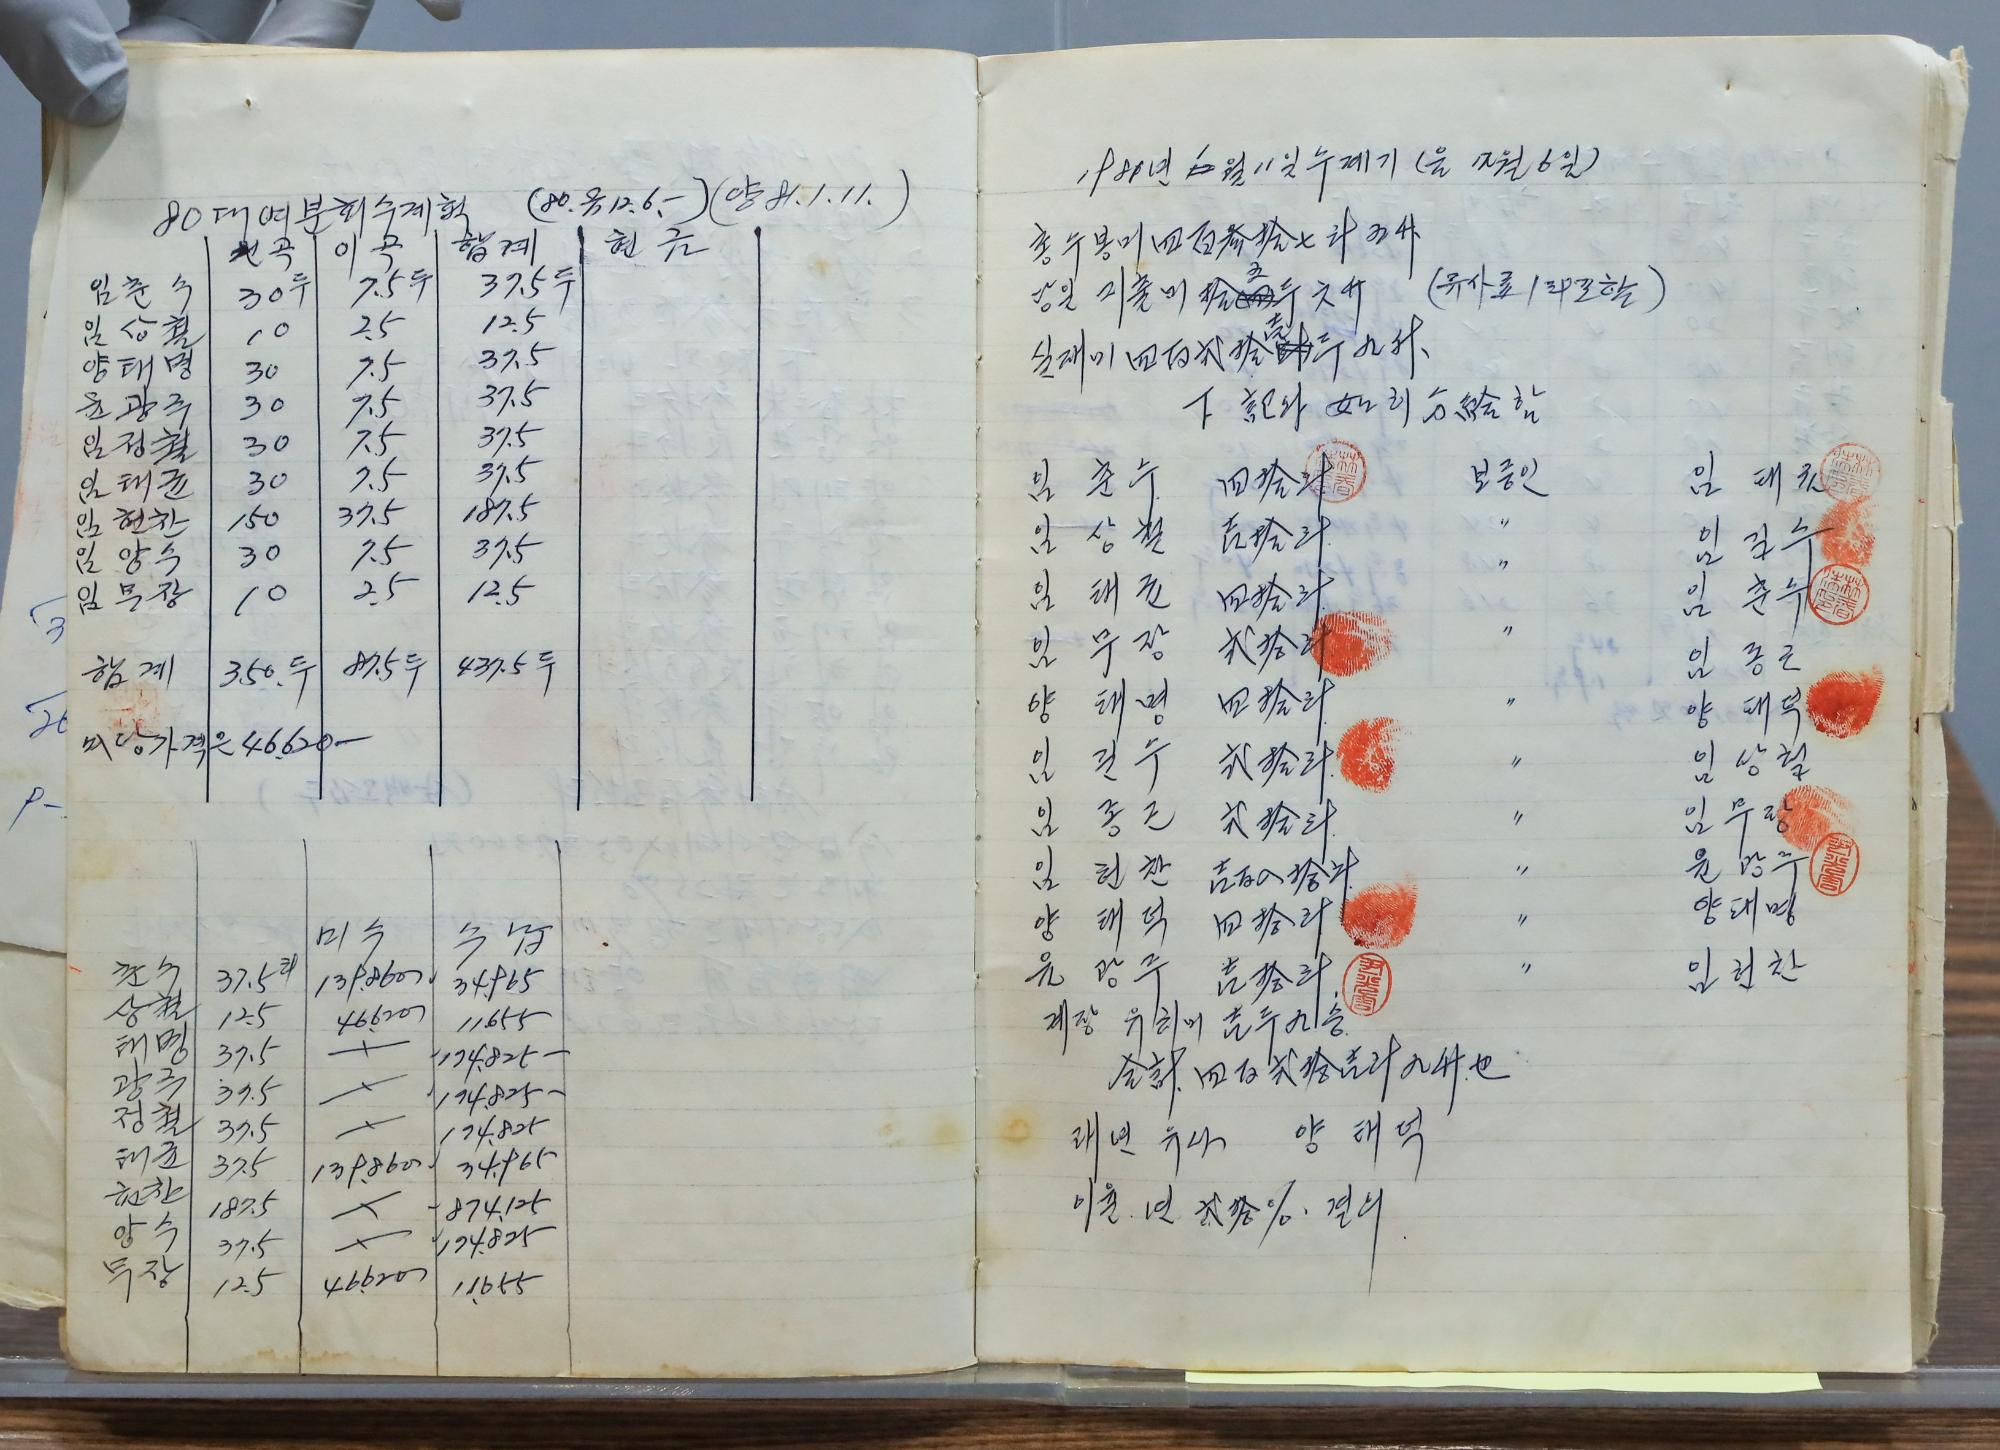 80대여분회수계획 (80.음12.6.-)(양81.1.11.)
원곡 이곡 합계 현금
임춘수 30두 7.5두 37.5두
임상철 10 2.5 12.5
양태명 30 7.5 37.5
윤광주 30 7.5 37.5
임정철 30 7.5 37.5
임태윤 30 7.5 37.5
임현찬 150 37.5 187.5
임양수 30 7.5 37.5
임무장 10 2.5 12.5
합계 350.두 87.5두 437.5두
미당가격은 46620-
미수 수납
춘수 37.5 139.860 34.965
상철 12.5 46.620 11.655
태명 37.5 174.825-
광주 37.5 174.825-
정철 37.5 174.825
태윤 37.5 139.860 34.965
현찬 187.5 874.125
양수 37.5 174.825
무장 12.5 46.620 11.655
월 11일 수계기 (음 12월 6일)
총수봉미 四百參拾七斗五升
당일 지출미 拾五두六升 (유사료 1斗포함)
실재미 四百贰拾壱두九升
下記와 如히 分給함
임춘수 四拾斗 보증인 임태윤
임상철 壱拾斗 〃
임태윤 四拾斗 〃 임춘수
임무장 贰拾斗 〃 임종근
양태명 四拾斗 〃 양태덕
贰拾斗 〃 임상철
임종근 贰拾斗 〃 임무장
임현찬 壱百八拾斗 〃 윤광주
양태덕 四拾斗 〃 양태명
윤광주 壱拾斗 〃 임현찬
계장 유치미 壱두九승
合計 四百贰拾壱斗九升也
래년 유사 양태덕
이율 년 贰拾%. 결의